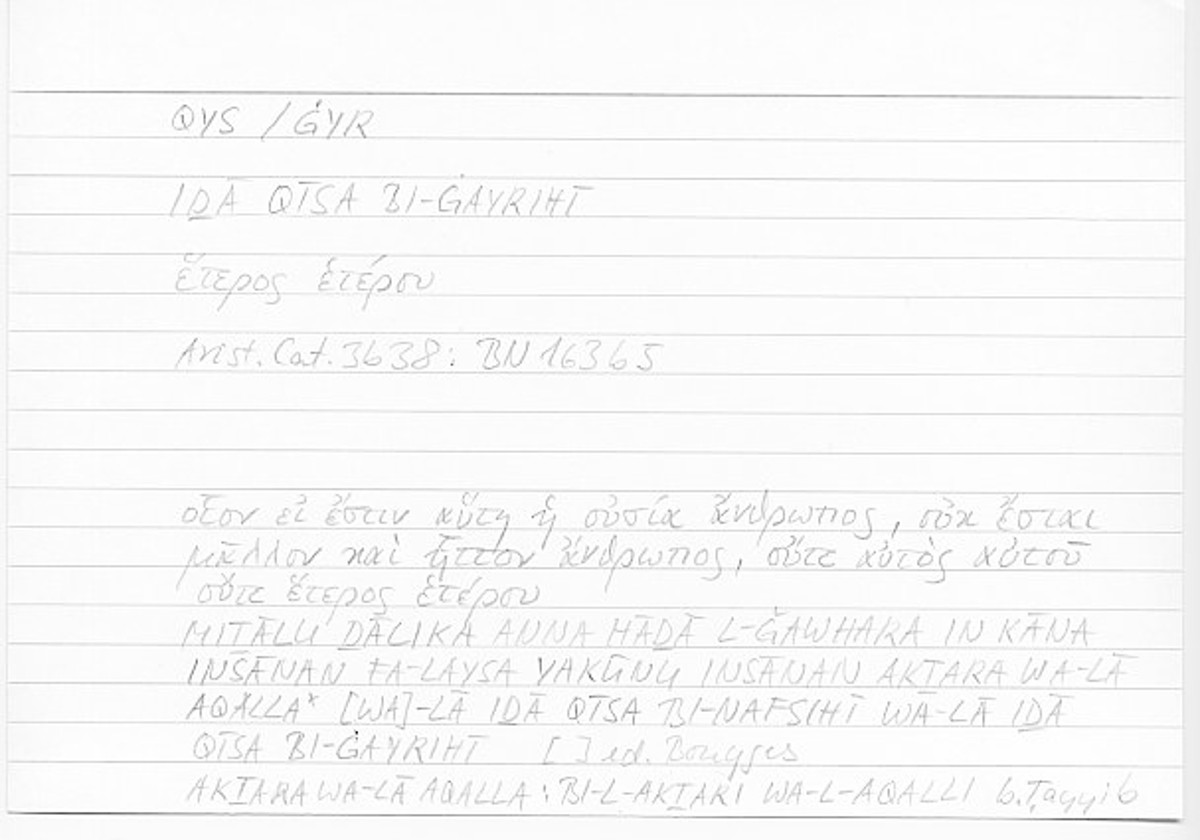 QYS / ĠYR
IḎĀ QĪSA BI-ĠAYRIHĪ
ἕτερος ἑτέρου
Arist. Cat. 3b38: BN 163b5
οἷον εἰ ἔστιν αὕτη ἡ οὐσία ἄνθρωπος, οὐκ ἔσται
μᾶλλον καὶ ἧττον ἄνθρωπος, οὔτε αὐτὸς αὑτοῦ
οὔτε ἕτερος ἑτέρου
MITĀLU ḎĀLIKA ANNA HĀḎĀ L-ǦAWHARA IN KĀNA
INSĀNAN FA-LAYSA YAKŪNU INSĀNAN AKTARA WA-LĀ
AQALLA* [WA]-LĀ IḎĀ QĪSA BI-NAFSIHĪ WA-LĀ IḎĀ
QĪSA BI-ĠAYRIHĪ [ ] ed. Bouyges
AKṮARA WA-LĀ AQALLA : BI-L-AKṮARI WA-L-AQALLI b. Ṭayyib